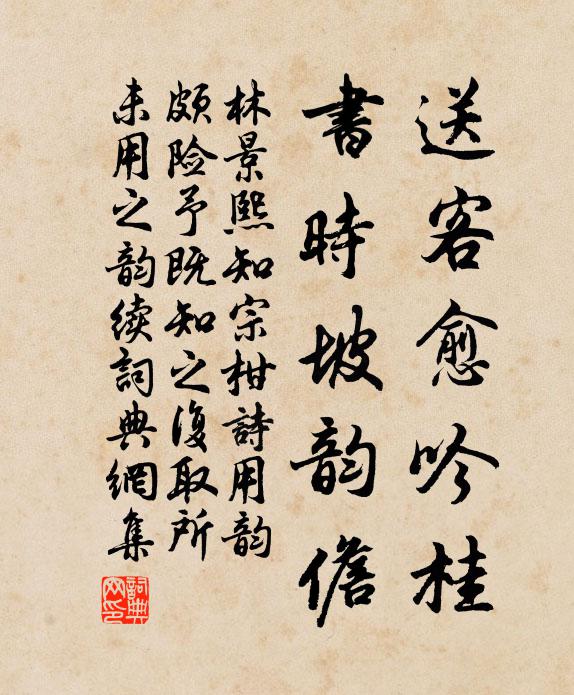 送客愈吟桂
書時坡韵儋
林景熙知宗柑詩用韵
頗险予既知之復取所
未用之韵续詞典網集
詞典网印